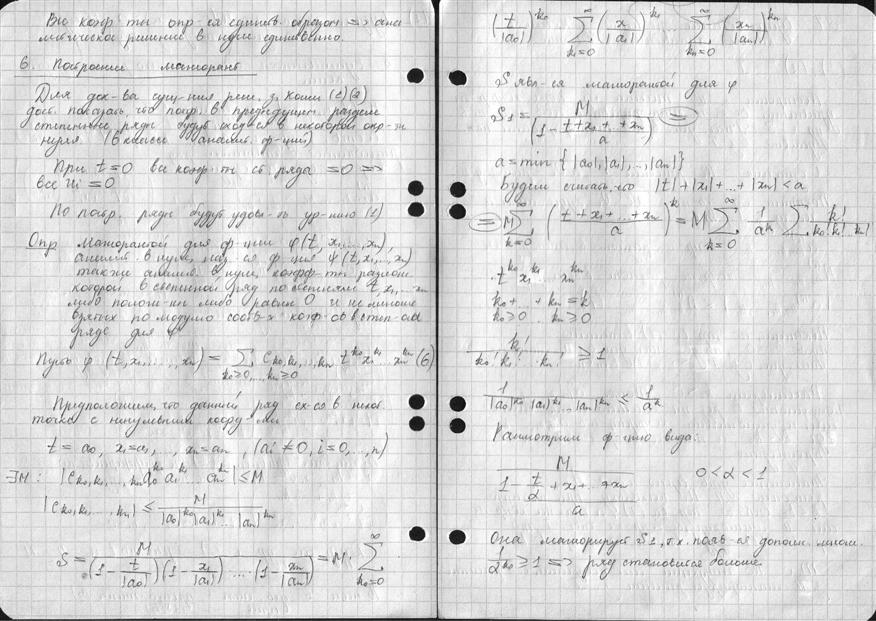 Все коэф-ты опр-ся единств. образом => ана
литическое решение в нуле единственно.
6. Построение мажорант
Для док-ва сущ-ния реш. з. Коши (1)(2)
дост. показать, что постр. в предыдущем разделе
степенные ряды будут сход-ся в некоторой окр-ти
нуля (в классе аналит. ф-ций)
При t=0 все коэф-ты ст. ряда =0 =>
все u_i = 0
По постр. ряды будут удовл-ть ур-нию (1)
Опр Мажорантой для ф-ции φ(t, x_1, ..., x_n),
аналит. в нуле, наз-ся ф-ция ψ(t, x_1, ..., x_n)
также аналит. в нуле, коэфф-ты разлож.
которой в степенной ряд по степеням t, x_1, ... x_n
либо полож-ны либо равны 0 и не меньше
взятых по модулю соотв-х коэф-ов в степ-ом
ряде для φ
Пусть φ(t, x_1, ..., x_n) = ∑_{k_0≥0, ..., k_n≥0} C_{k_0,k_1,...,k_n} t^{k_0} x_1^{k_1} ... x_n^{k_n} (6)
Предположим, что данный ряд сх-ся в некот.
точке с ненулевыми коорд-ми
t = a_0, x_1=a_1, ..., x_n=a_n, (a_i ≠ 0, i=0,...,n)
∃M: |C_{k_0,k_1,...,k_n} a_0^{k_0} a_1^{k_1} ... a_n^{k_n}| ≤ M
|C_{k_0,k_1,...,k_n}| ≤ M / (|a_0|^{k_0} |a_1|^{k_1} ... |a_n|^{k_n})
S = M / ((1 - t/|a_0|)(1 - x_1/|a_1|) ... (1 - x_n/|a_n|)) = M · ∑_{k_0=0}^∞
(t/|a_0|)^{k_0} ∑_{k_1=0}^∞ (x_1/|a_1|)^{k_1} ∑_{k_n=0}^∞ (x_n/|a_n|)^{k_n}
S явл-ся мажорантой для φ
S_1 = M / (1 - (t+x_1+...+x_n)/a) =
a = min {|a_0|, |a_1|, ..., |a_n|}
Будем считать, что |t|+|x_1|+...+|x_n| < a
= M ∑_{k=0}^∞ ((t+x_1+...+x_n)/a)^k = M ∑_{k=0}^∞ 1/a^k ∑ k!/(k_0! k_1! ... k_n!)
· t^{k_0} x_1^{k_1} ... x_n^{k_n}
k_0 + ... + k_n = k
k_0≥0 ... k_n≥0
k!/(k_0! k_1! ... k_n!) ≥ 1
1/(|a_0|^{k_0} |a_1|^{k_1} ... |a_n|^{k_n}) ≤ 1/a^k
Рассмотрим ф-цию вида:
M / (1 - (t/α + x_1 + ... + x_n)/a) 0<α<1
Она мажорирует S_1, т.к. появ-ся дополн. множ.
1/α^{k_0} ≥ 1 => ряд становится больше.